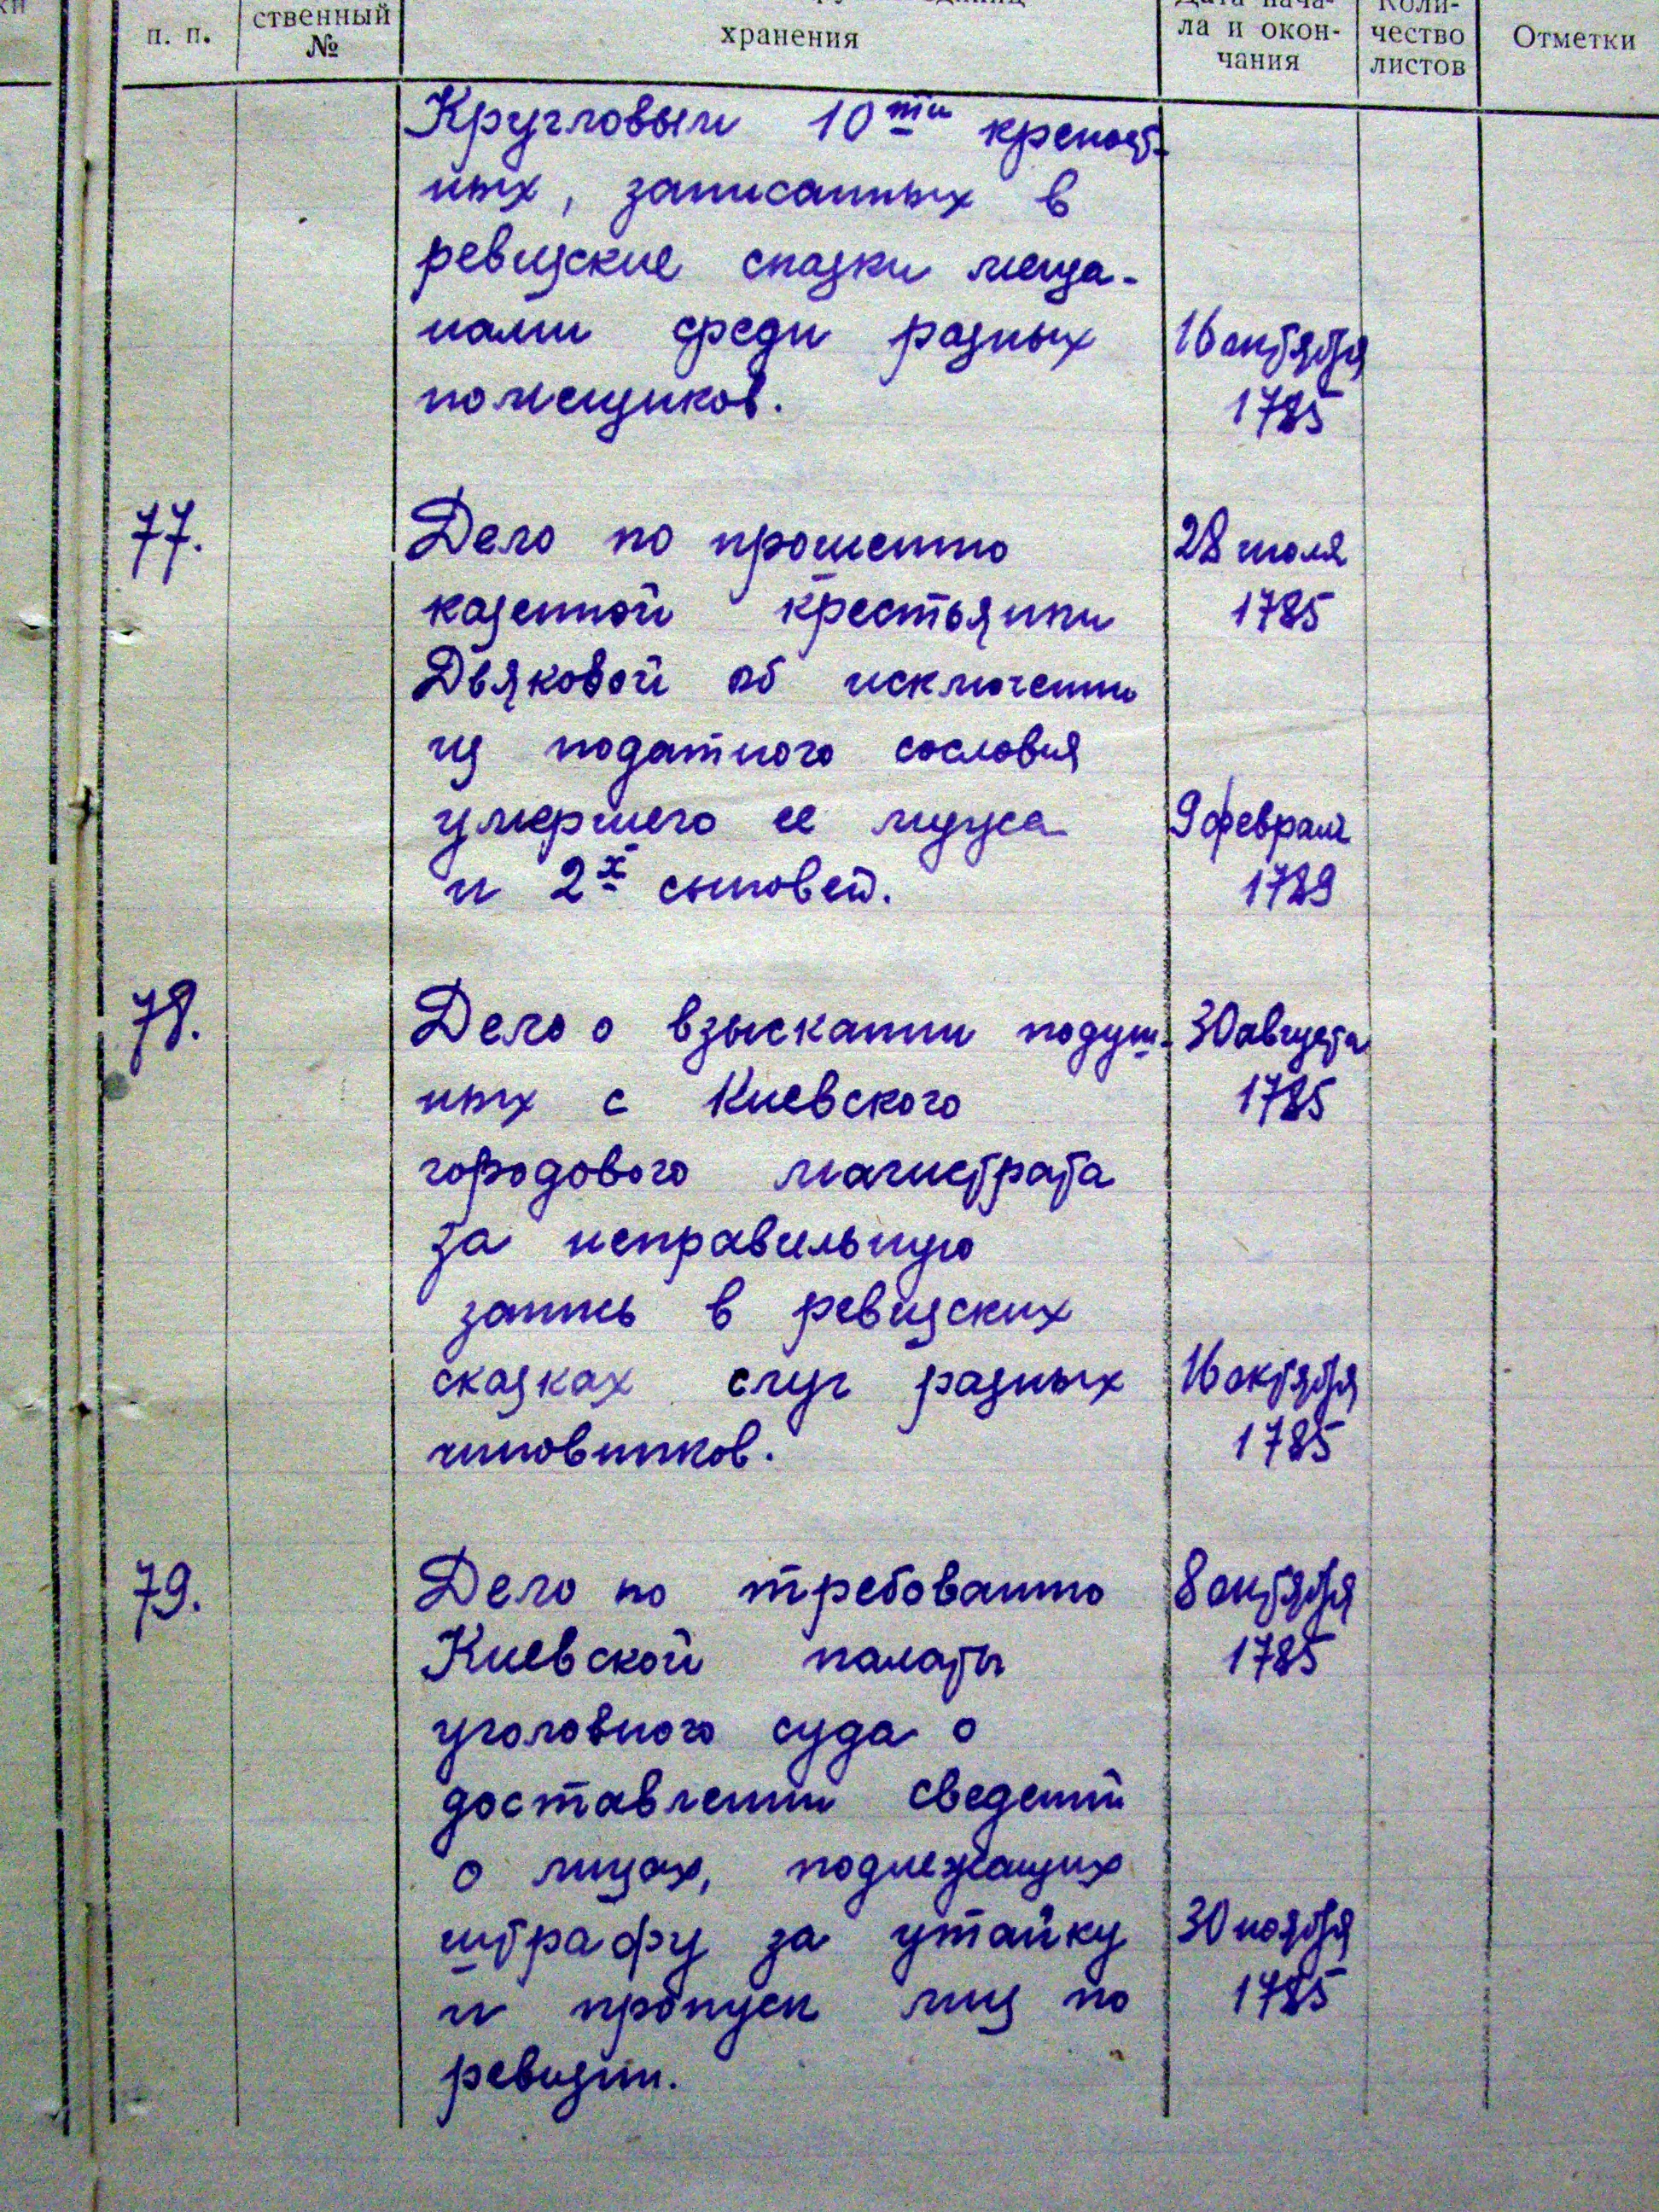 п. п.
ственный
№
хранения
Дата нача-
ла и окон-
чания
Коли-
чество
листов
Отметки
Кругловым 10ти крепост-
ных, записанных в
ревизские сказки меща-
нами среди разных
помещиков.
16 октября
1785
77.
Дело по прошению
казенной крестьянки
Дьяковой об исключении
из податного сословия
умершего ее мужа
и 2х сыновей.
28 июля
1785
9 февраля
1789
78.
Дело о взыскании подуш-
ных с Киевского
городового магистрата
за неправильную
запись в ревизских
сказках слуг разных
чиновников.
30 августа
1785
16 октября
1785
79.
Дело по требованию
Киевской палаты
уголовного суда о
доставлении сведений
о лицах, подлежащих
штрафу за утайку
и пропуск лиц по
ревизии.
8 октября
1785
30 ноября
1785